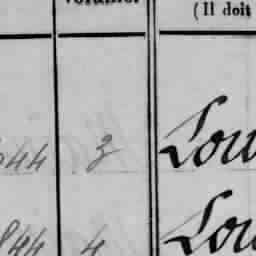 (Il doit
644 3 Lou
844 4 Lou